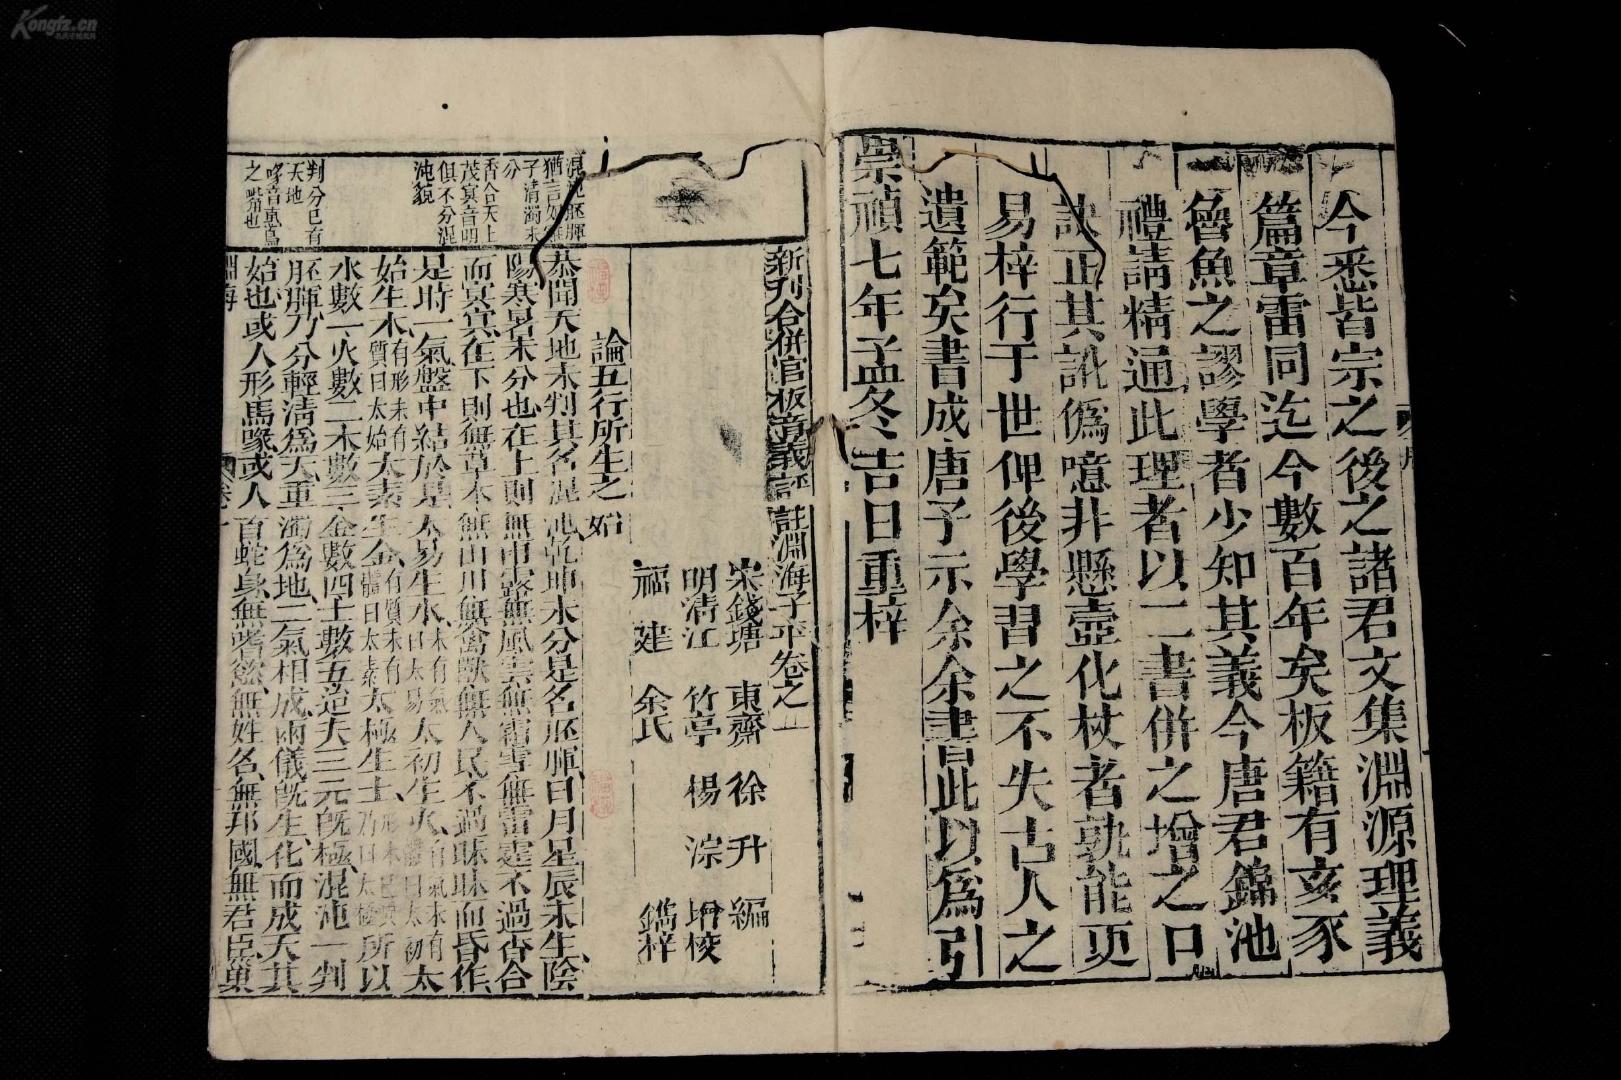 今悉皆宗之後之諸君文集淵源理義
篇章雷同迄今數百年矣板籍有亥豕
魯魚之謬學者少知其義今唐君錦池
禮請精通此理者以二書併之增之口
訣正其訛偽噫非懸壺化杖者孰能更
易梓行于世俾後學習之不失古人之
遺範矣書成唐子示余余書此以爲引
崇禎七年孟冬吉日重梓
新刊合併官板音義評註淵海子平卷之
宋錢塘 東齋 徐升 編
明清江 竹亭 楊淙 增校
福建 余氏 鐫梓
論五行所生之始
恭聞天地未判其名混沌乾坤未分是名胚腪日月星辰未生陰
陽寒暑未分也在上則無雨露無風雲無霜雪無雷霆不過杳合
而冥冥在下則無草木無山川無禽獸無人民不過昧昧而昏作
是時一氣盤中結於是太易生水未有氣曰太易太初生火有氣未有體曰太初太
始生木有形未有質曰太始太素生金有質未有體曰太素太極生土形體已具乃曰太極所以
水數一火數二木數三金數四土數五迨夫三元旣極混沌一判
胚腪乃分輕淸爲天重濁爲地二氣相成兩儀旣生化而成天其
始也或人形馬喙或人首蛇身無嗜慾無姓名無邦國無君臣巢
混沌胚腪
猶言如雞
子淸濁未
分
杳合天上
茂冥音明
俱不分混
沌貌
判分已有
天地
喙音重爲
之嘴也
淵海
Kongfz.cn